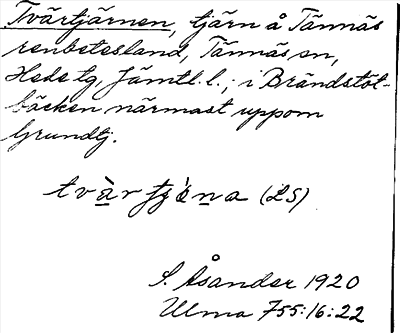 Tvärtjärnen, tjärn å Tännäs
renbetesland, Tännäs sn,
Hede tg, Jämtl. l.; i Brändstöt-
bäcken närmast uppom
Grundtj.
tvàrtjä̀na (LS)
S. Åsander 1920
Ulma 755:16:22